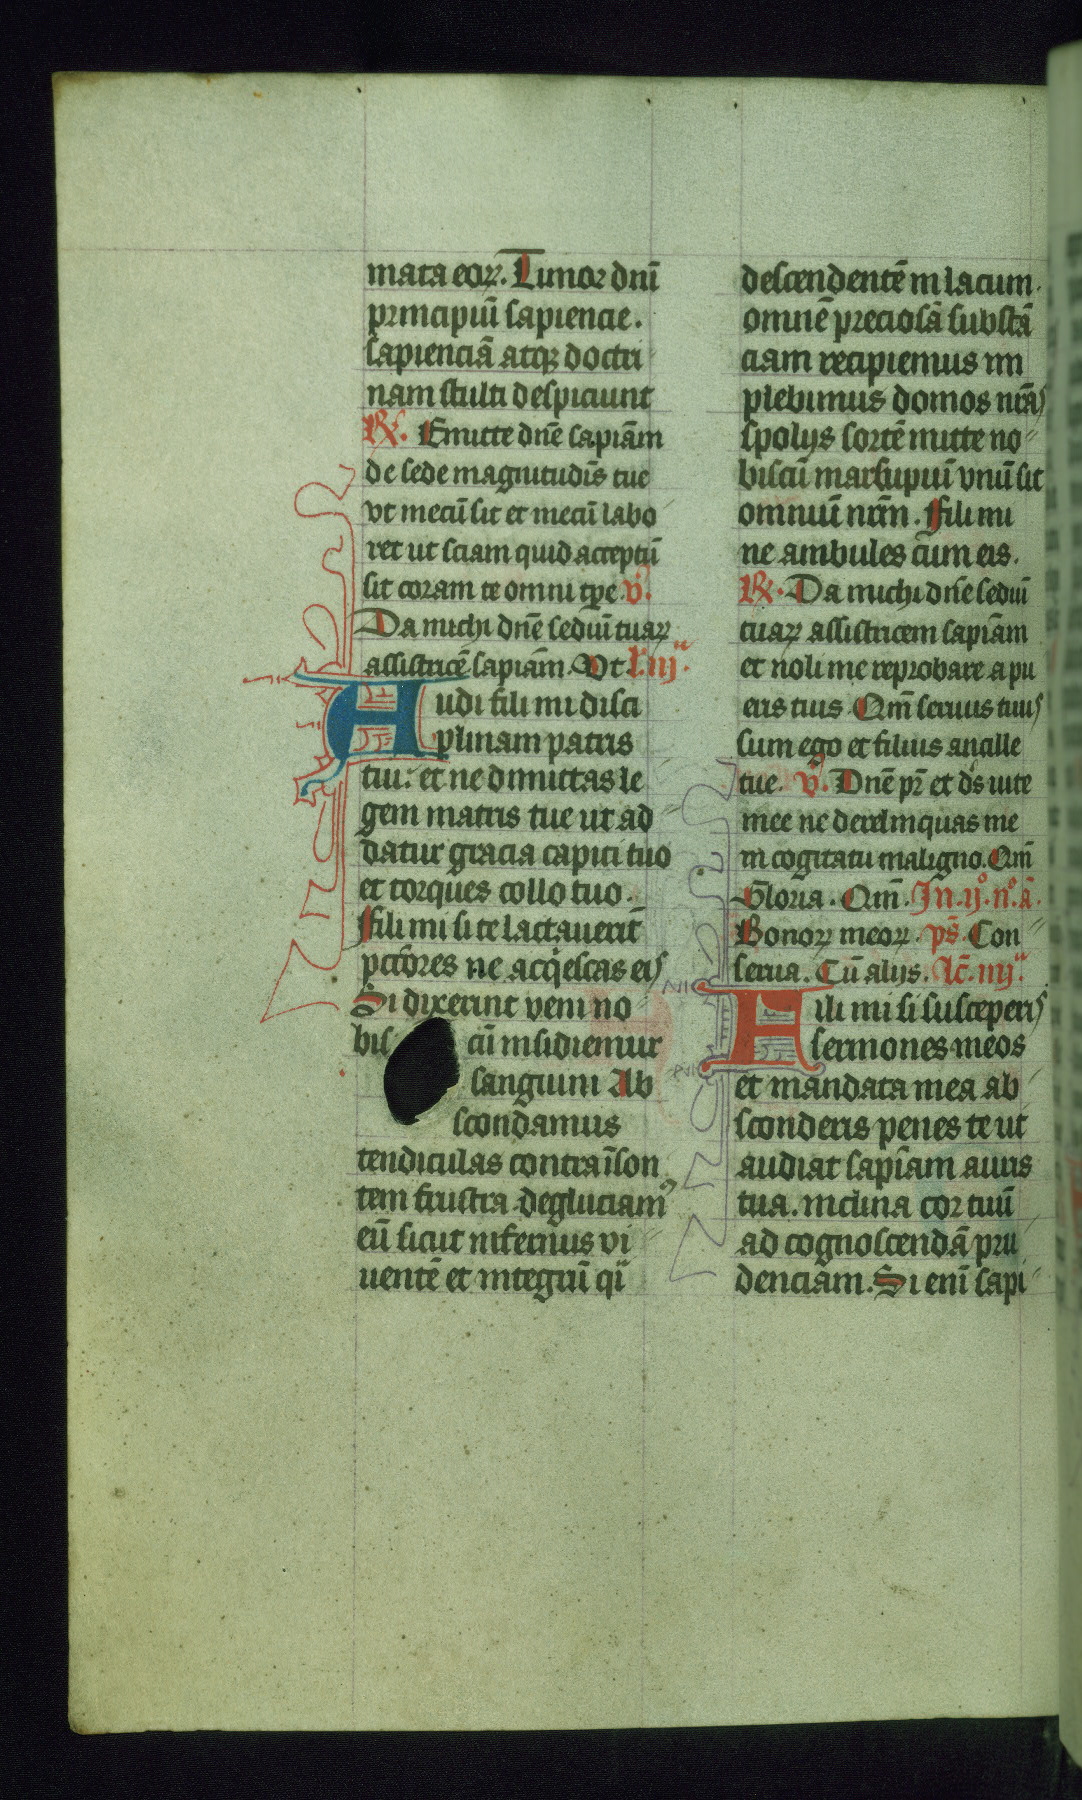 mata eoꝝ. Timor dn̄i
principiū sapiencie.
sapienciā atqꝫ doctri
nam stulti despiciunt
℟. Emitte dn̄e sapiām
de sede magnitudīs tue
vt mecū sit et mecū labo
ret ut sciam quid acceptū
sit coram te omni tꝑe. v̄.
Da michi dn̄e sediū tuaꝝ
assistricē sapiām. Vt l. iijᵃ.
Audi fili mi disci
plinam patris
tui: et ne dimittas le
gem matris tue ut ad
datur gracia capiti tuo
et torques collo tuo.
Fili mi si te lactauerīt
pctōres ne acqͥescas eis
Si dixerint veni no
bis cū insidiemur
sanguini Ab
scondamus
tendiculas contra īson
tem frustra degluciamꝰ
eū sicut infernus vi
uentē et integrū qͣi
descendentē in lacum.
omnē preciosā substā
ciam recipiemus im
plebimus domos nr̄as
spolijs sortē mitte no
biscū marsupiū vnū sit
omniū nr̄m. Fili mi
ne ambules cum eis.
℟. Da michi dn̄e sediū
tuaꝝ assistricem sapiām
et noli me reprobare a pu
eris tuis Qm̄ seruus tuus
sum ego et filius ancille
tue. v̄. Dn̄e pr̄ et ds̄ uite
mee ne derelinquas me
in cogitatu maligno. Qm̄
Gloria. Qm̄. In .ijº. nº. ā.
Bonoꝝ meoꝝ. ps̄. Con
serua. Cū alijs. lc̄. iiijᵃ.
Fili mi si susceperis
sermones meos
et mandata mea ab
sconderis penes te ut
audiat sapīam auris
tua. inclina cor tuū
ad cognoscendā pru
denciam. Si enī sapi